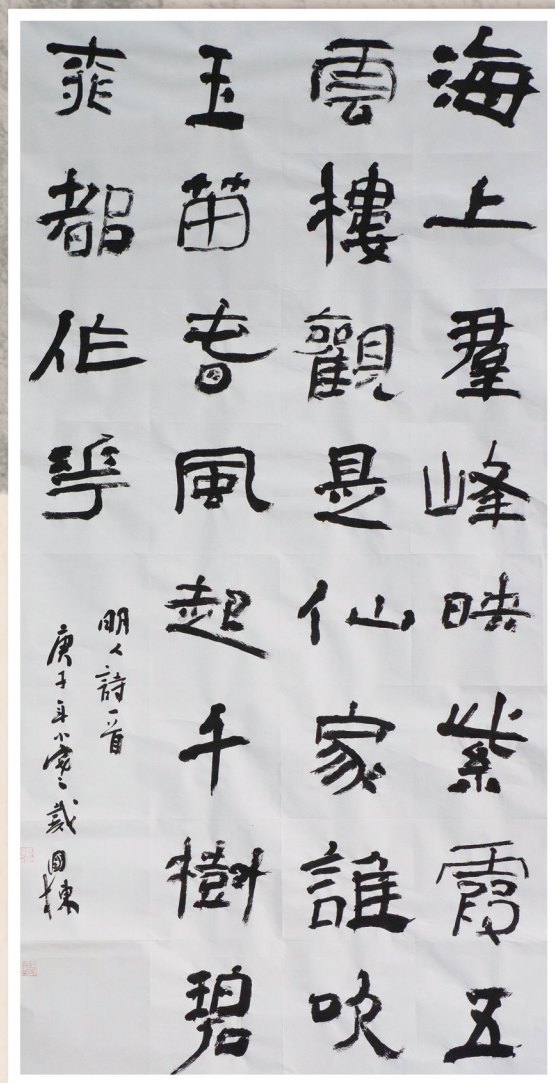 海上羣峰映紫霞五
雲樓觀是仙家誰吹
玉笛春風起千樹碧
桃都作華
明人詩一首
庚子年小寒戴国棟